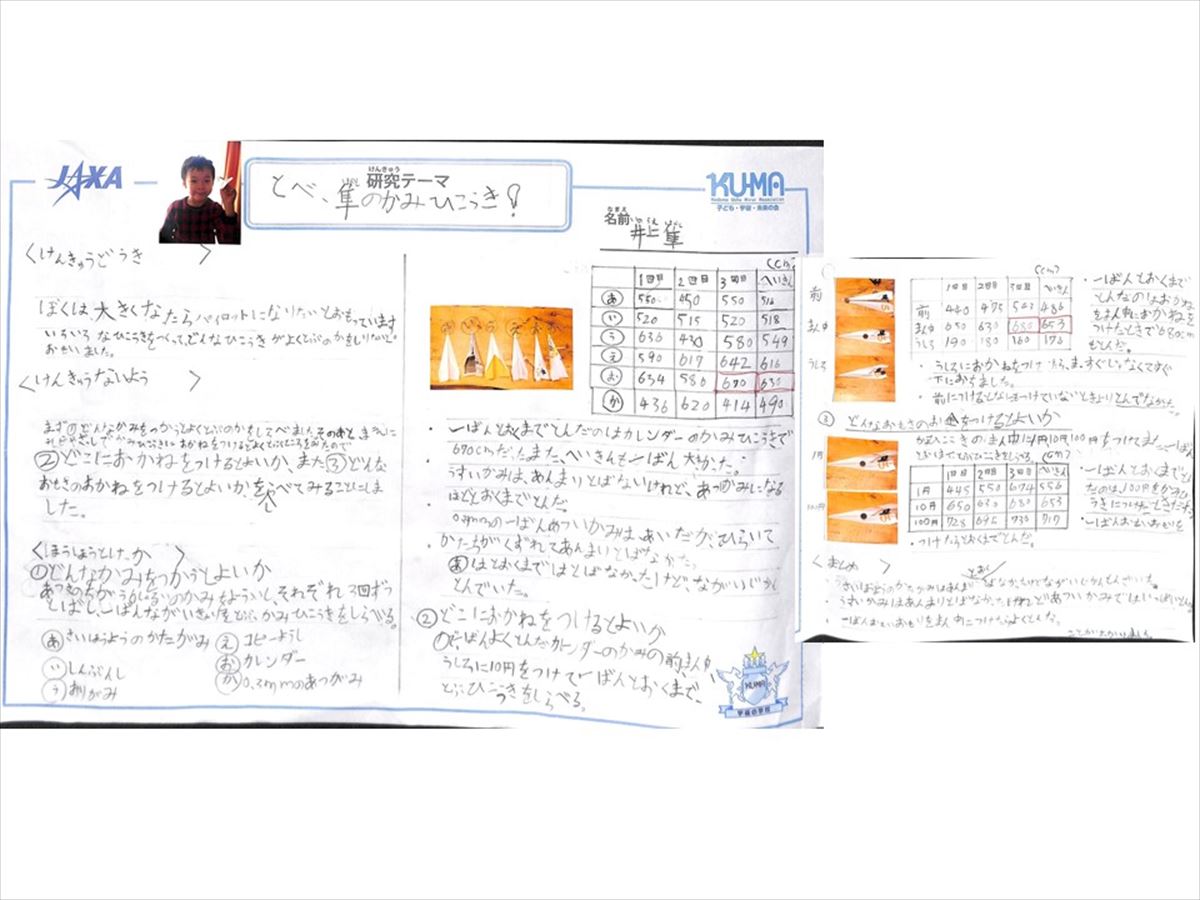 JAXA
けんきゅう
研究テーマ
とべ、隼のかみひこうき!
KU-MA
Kodomo Uchu Mirai Association
子ども・宇宙・未来の会
なまえ
名前
井上隼
<けんきゅうどうき>
ぼくは大きくなたらパイロットになりたいとおもっています
いろいろなひこうきをつくって、どんなひこうきがよくとぶのかをしりたいと
おもいました。
<けんきゅうないよう>
②どこにおかねをつけるとよいか、また③どんな
おもさのおかねをつけるとよいか、をしらべてみることにしま
した。
<ほうほうとけっか>
①どんなかみをつかうとよいか
とばし、一ばんながいきょりをとぶ、かみひこうきをしらべる。
あ さいほうようのかたがみ
い しんぶんし
う おりがみ
え コピーようし
お カレンダー
か 0.3mmのあつがみ
(cm)
1回目 2回目 3回目 へいきん
あ 550 450 550 516
い 520 515 520 518
う 636 430 580 549
え 590 617 642 616
お 634 580 690 630
か 436 620 414 490
あ い う え お か
・一ばんとおくまでとんだのはカレンダーのかみひこうきで
690cmだった。また、へいきんも一ばん大きかった。
・うすいかみは、あんまりとばないけれど、あつがみになる
ほどとおくまでとんだ。
・0.3mmの一ばんあついかみは、あいだが、ひらいて
かたちがくずれてあんまりとばなかった。
・あはとおくまではとばなかったけど、ながいじかん
とんでいた。
②どこにおかねをつけるとよいか
①で一ばんよくとんだカレンダーのかみの前、まん中、
うしろに10円をつけて一ばんとおくまで、
とぶひこうきをしらべる。
KUMA
宇宙の学校
前
まん中
うしろ
(cm)
1回目 2回目 3回目 へいきん
前 440 475 542 486
まん中 650 630 680 653
うしろ 190 180 160 176
・一ばんとおくまで
とんだのはおかね
をまん中におかねを
つけたときで680cm
もとんだ。
・うしろにおかねをつけたら、まっすぐじゃなくてすぐ
下におちました。
・前につけるとなにもつけていないときよりとんでなかった。
③ どんなおもさのお金をつけるとよいか
1円
100円
(cm)
1回目 2回目 3回目 へいきん
1円 445 550 674 556
10円 650 630 680 653
100円 728 695 730 717
・一ばんとおくまでと
んだのは、100円をかみひ
うきにつけたときだった
・一ばんおもいおもりを
つけたらとおくまでとんだ。
<まとめ>
・うすいかみはあんまりとばなかったけれどあついかみではいっぱいとんだ
・一ばんおもいおもりをまん中につけたらよくとんだ。